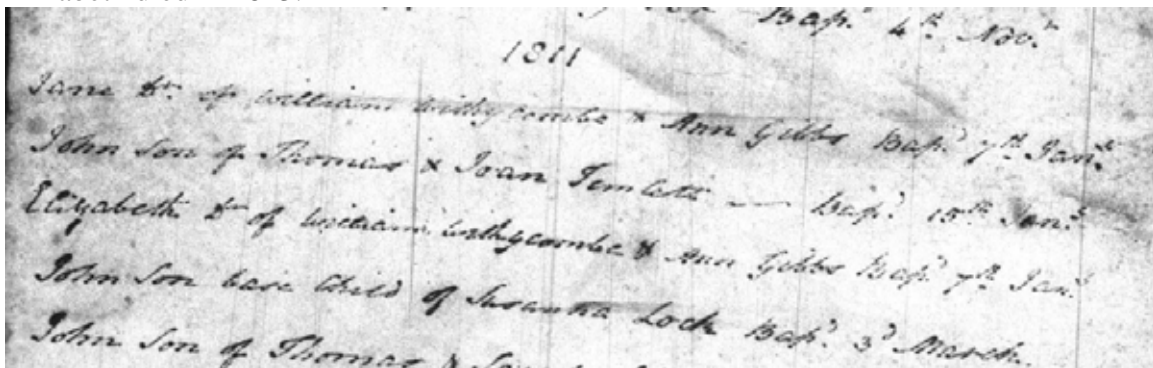 Bap.d 4th Nov.r
1811
Jane Dr. of William Withycombe & Ann Gibbs Bap.d 7th Jan.y
John Son of Thomas & Joan Temlett — Bap.d 10th Jan.y
Elizabeth Dr of William Withycombe & Ann Gibbs Bap.d 7th Jan.y
John Son base Child of Susanna Lock Bap.d 3d March.
John Son of Thomas &